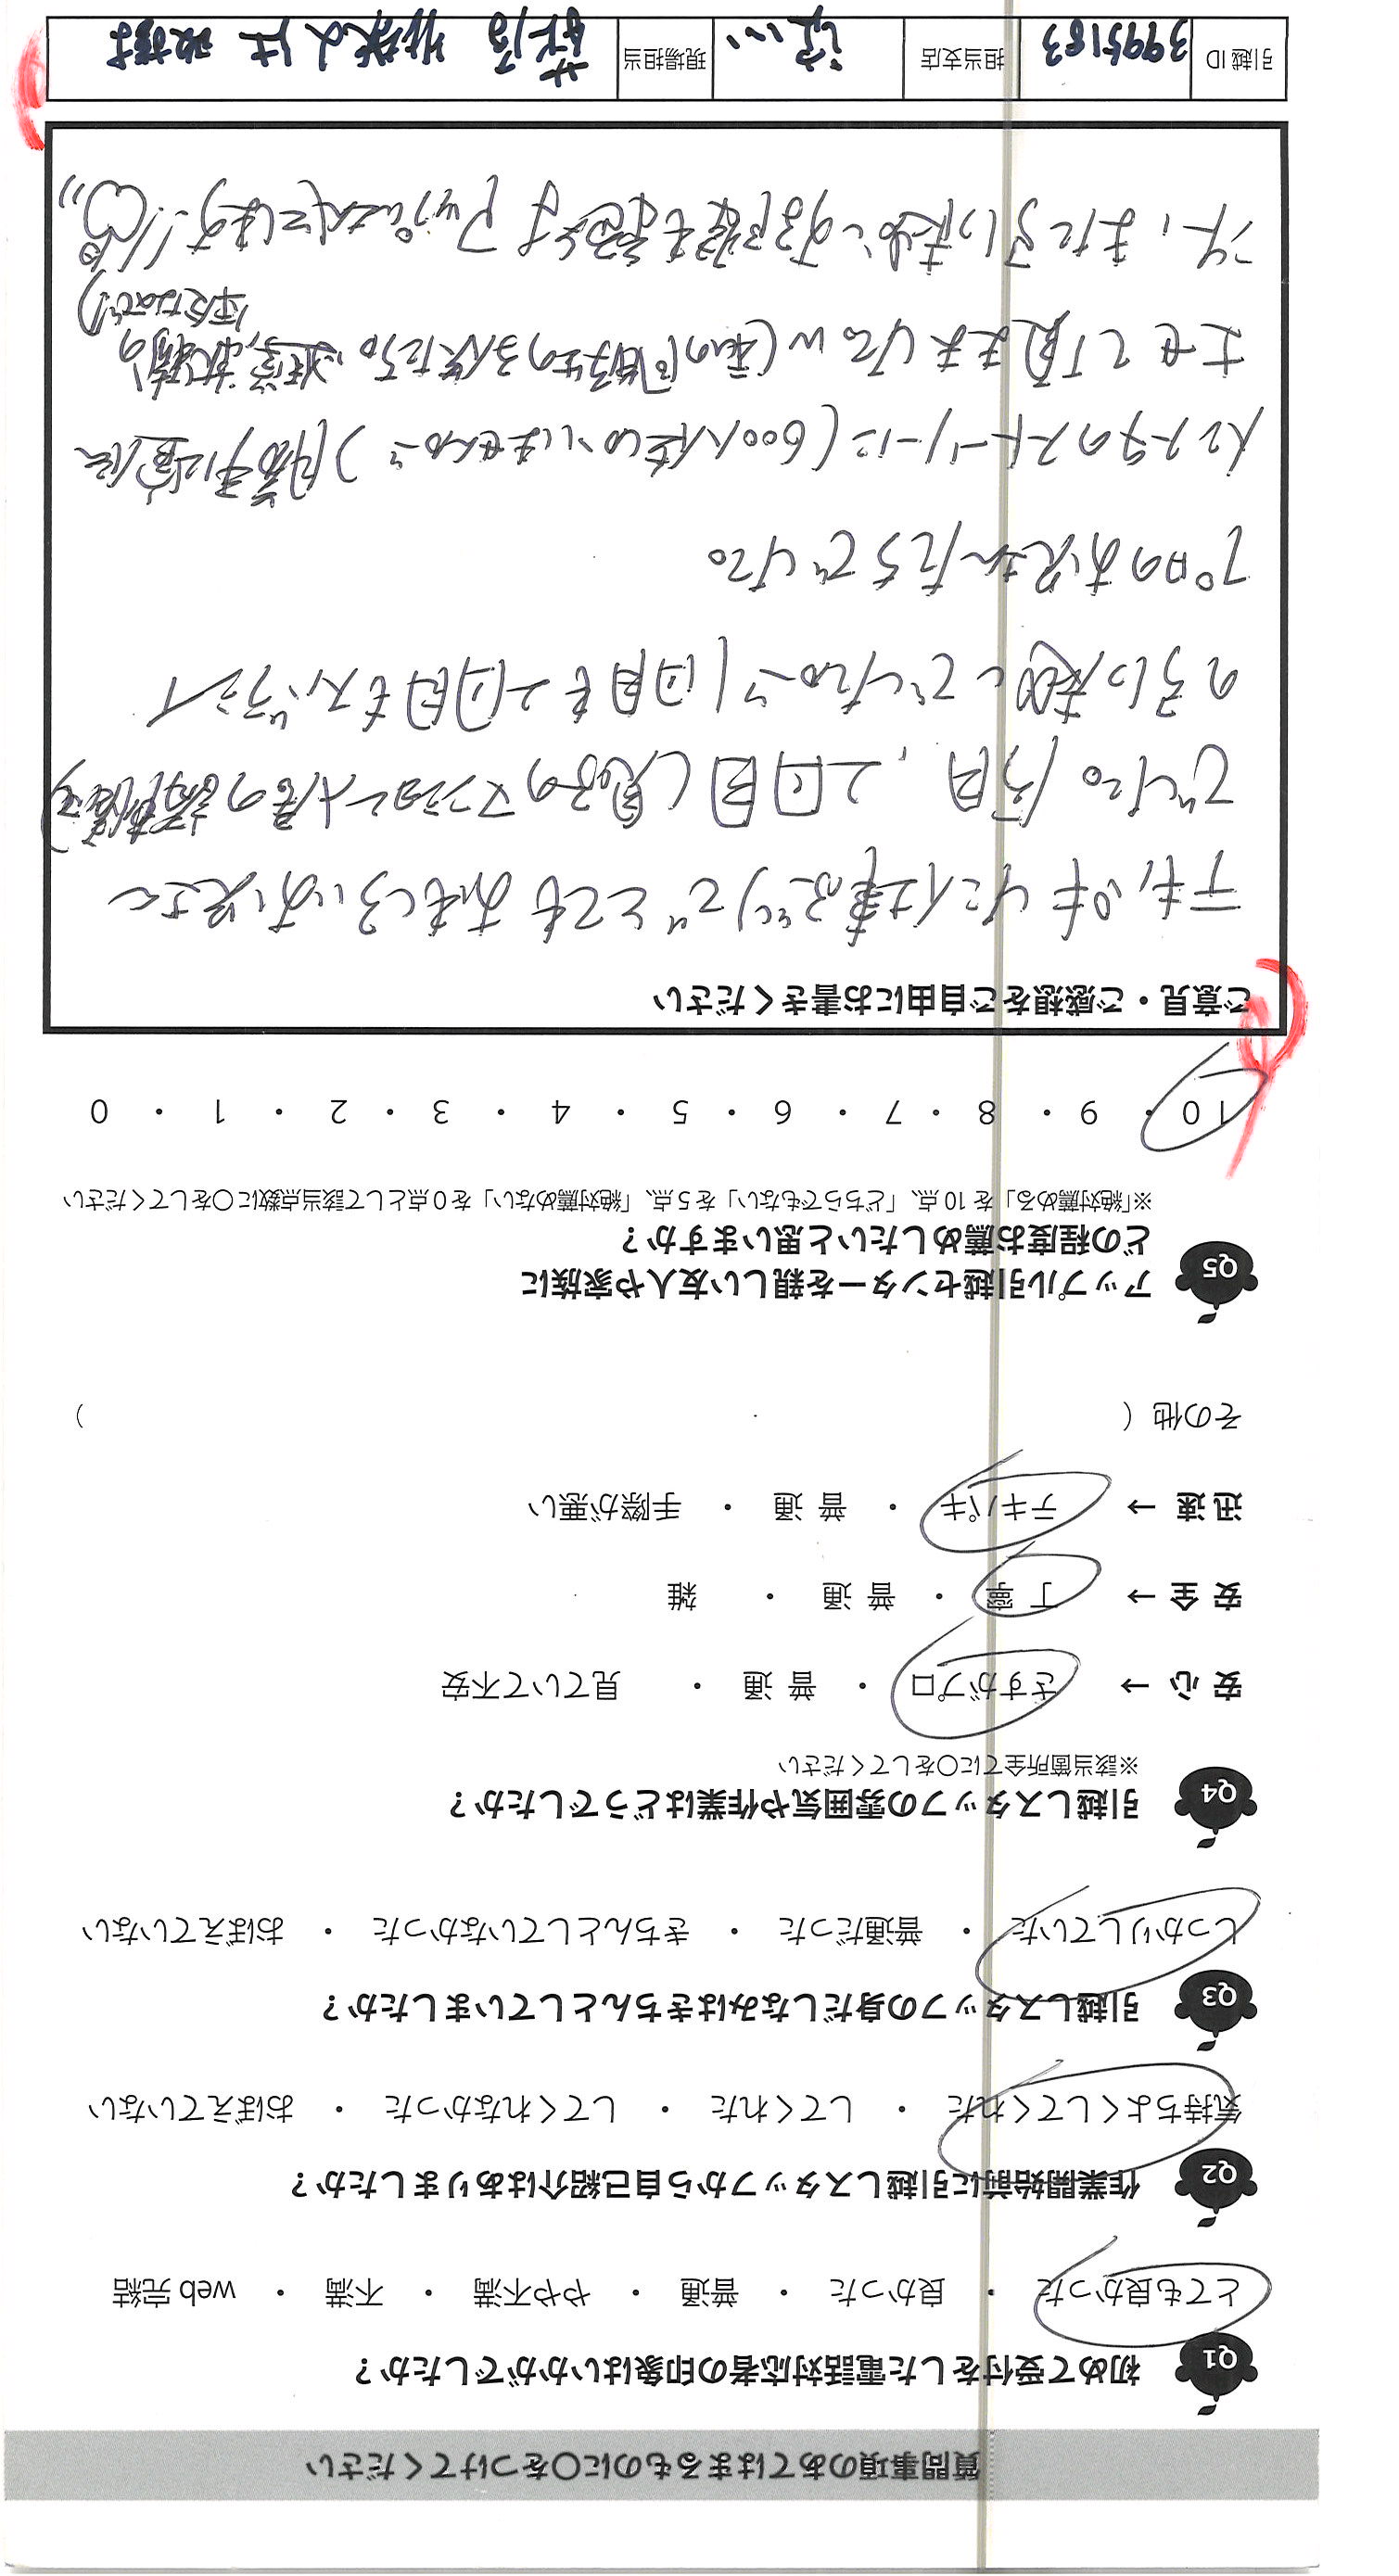 質問事項のあてはまるものに○をつけてください
Q1 初めて受付をした電話対応者の印象はいかがでしたか？
とても良かった ・ 良かった ・ 普通 ・ やや不満 ・ 不満 ・ web 完結
Q2 作業開始前に引越しスタッフから自己紹介はありましたか？
気持ちよくしてくれた ・ してくれた ・ してくれなかった ・ おぼえていない
Q3 引越しスタッフの身だしなみはきちんとしていましたか？
しっかりしていた ・ 普通だった ・ きちんとしていなかった ・ おぼえていない
Q4 引越しスタッフの雰囲気や作業はどうでしたか？
※該当箇所全てに○をしてください
安 心 → さすがプロ ・ 普 通 ・ 見ていて不安
安 全 → 丁 寧 ・ 普 通 ・ 雑
迅 速 → テキパキ ・ 普 通 ・ 手際が悪い
その他（ ）
Q5 アップル引越センターを親しい友人や家族に
どの程度お薦めしたいと思いますか？
※「絶対薦める」を 10 点、「どちらでもない」を 5 点、「絶対薦めない」を 0 点として該当点数に○をしてください
10 ・ 9 ・ 8 ・ 7 ・ 6 ・ 5 ・ 4 ・ 3 ・ 2 ・ 1 ・ 0
ご意見・ご感想をご自由にお書きください
仕事ぶりでとてもおもしろいお兄さん
でした。今日、2回目(息子のマンション
の引っ越しでしたが、1回目も2回目もスバラシイ
プロのお兄さんたちでした。
インスタのストーリーに(600人位しかいませんが)
させて頂きました。w
又、また引っ越しする際も
引越 ID 3995163 担当支店 現場担当